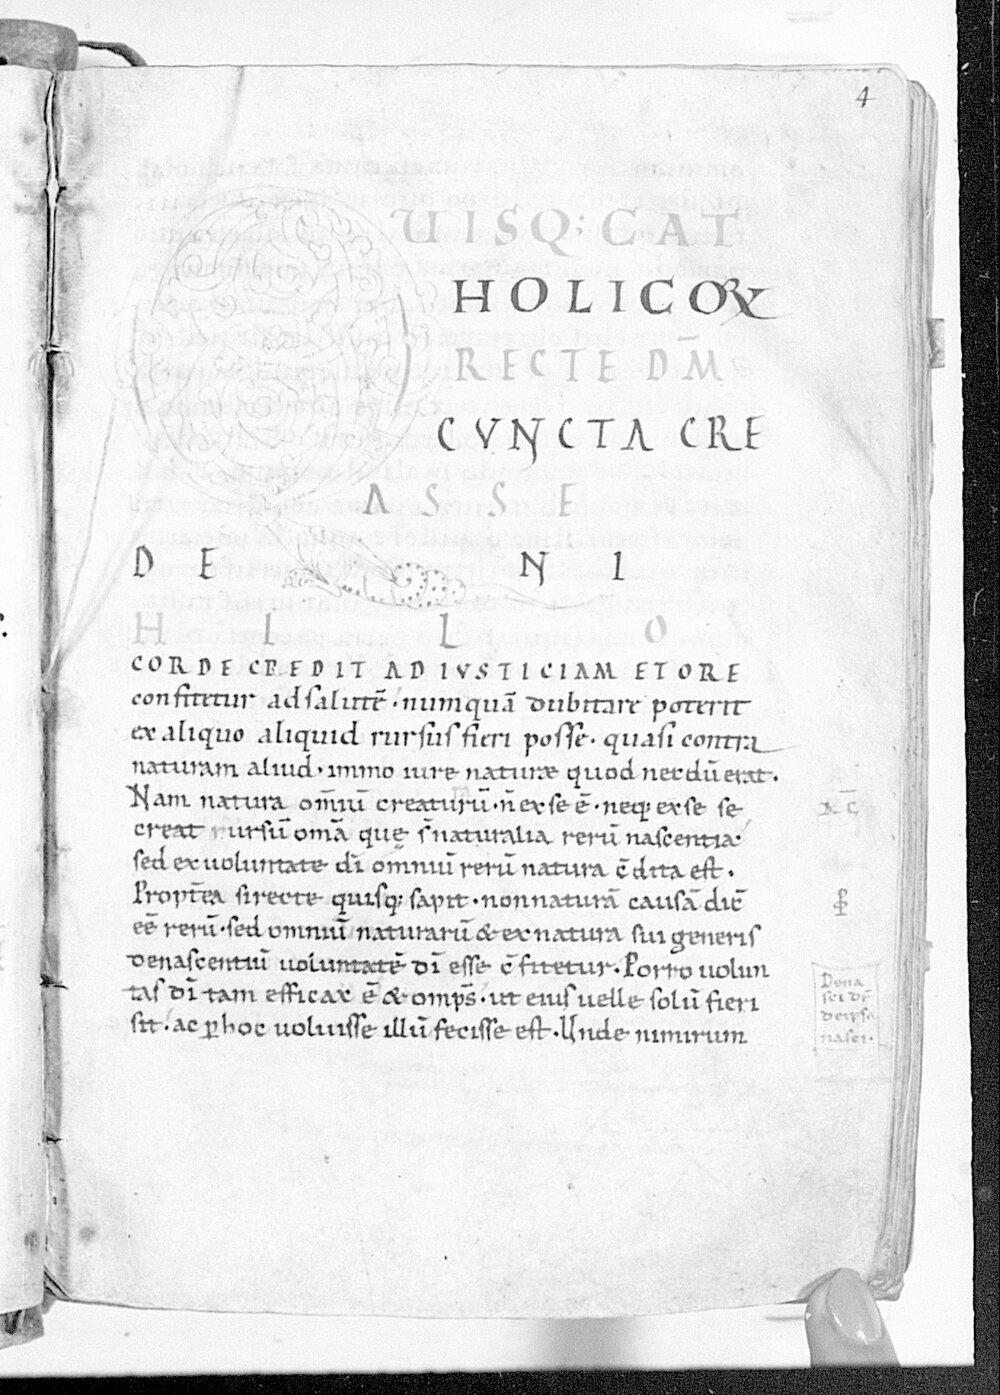 4
UISQ; CAT
HOLICOꝜ
RECTE DM̄
CVNCTA CRE
ASSE
DE NI
HILO
CORDE CREDIT AD IVSTICIAM ET ORE
confitetur ad salutē · numquā dubitare poterit
ex aliquo aliquid rursus fieri posse · quasi contra
naturam aliud · immo iure naturæ quod necdū erat ·
Nam natura om̄iū creaturū · n̄ ex se ē · neq; ex se se
creat rursū om̄a que s̄ naturalia rerū nascentia
sed ex uoluntate dī omniū rerū natura c̄dita est ·
Propt̄ea si recte quisq; sapit · non naturā causā dic̄
eē rerū · sed omniū naturarū & ex natura sui generis
denascentiū uoluntatē dī esse c̄fitetur · Porro uolun
tas dī tam efficax ē & omp̄s · ut eius uelle solū fieri
sit · ac ꝑ hoc uoluisse illū fecisse est · Unde nimirum
Dena
sci dr̄
de ipsa
nasci ·